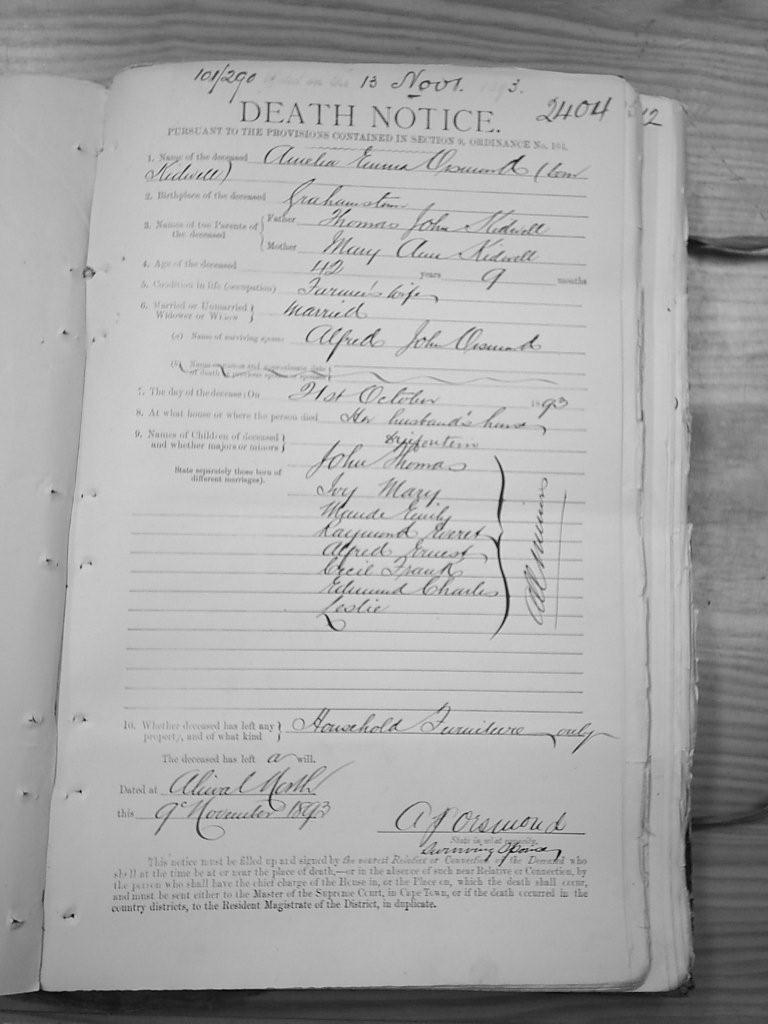 101/290 13 Novr. 3.
2404
DEATH NOTICE.
PURSUANT TO THE PROVISIONS CONTAINED IN SECTION 9, ORDINANCE No. 104.
1. Name of the deceased Amelia Emma Orsmond (born
Kidwell)
2. Birthplace of the deceased Grahamstown
3. Names of the Parents of the deceased { Father Thomas John Kidwell
Mother Mary Ann Kidwell
4. Age of the deceased 42 years 9 months
5. Condition in life (occupation) Farmer's Wife
6. Married or Unmarried } Married
Widower or Widow
(a) Name of surviving spouse Alfred John Orsmond
(b) Name or names and approximate date
of death of previous spouse or spouses
7. The day of the decease: On 21st October 1893
8. At what house or where the person died Her husband's house
9. Names of Children of deceased }
and whether majors or minors
State separately those born of
different marriages).
John Thomas
Ivy Mary
Maude Emily
Raymond Everet
Alfred Ernest
Cecil Frank
Edmund Charles
Leslie
All minors
10. Whether deceased has left any } Household Furniture only
property, and of what kind
The deceased has left a will.
Dated at Aliwal North
this 9th November 1893
A J Orsmond
State in what capacity.
Surviving Spouse
This notice must be filled up and signed by the nearest Relative or Connection of the Deceased who
shall at the time be at or near the place of death,—or in the absence of such near Relative or Connection, by
the person who shall have the chief charge of the House in, or the Place on, which the death shall occur,
and must be sent either to the Master of the Supreme Court, in Cape Town, or if the death occurred in the
country districts, to the Resident Magistrate of the District, in duplicate.